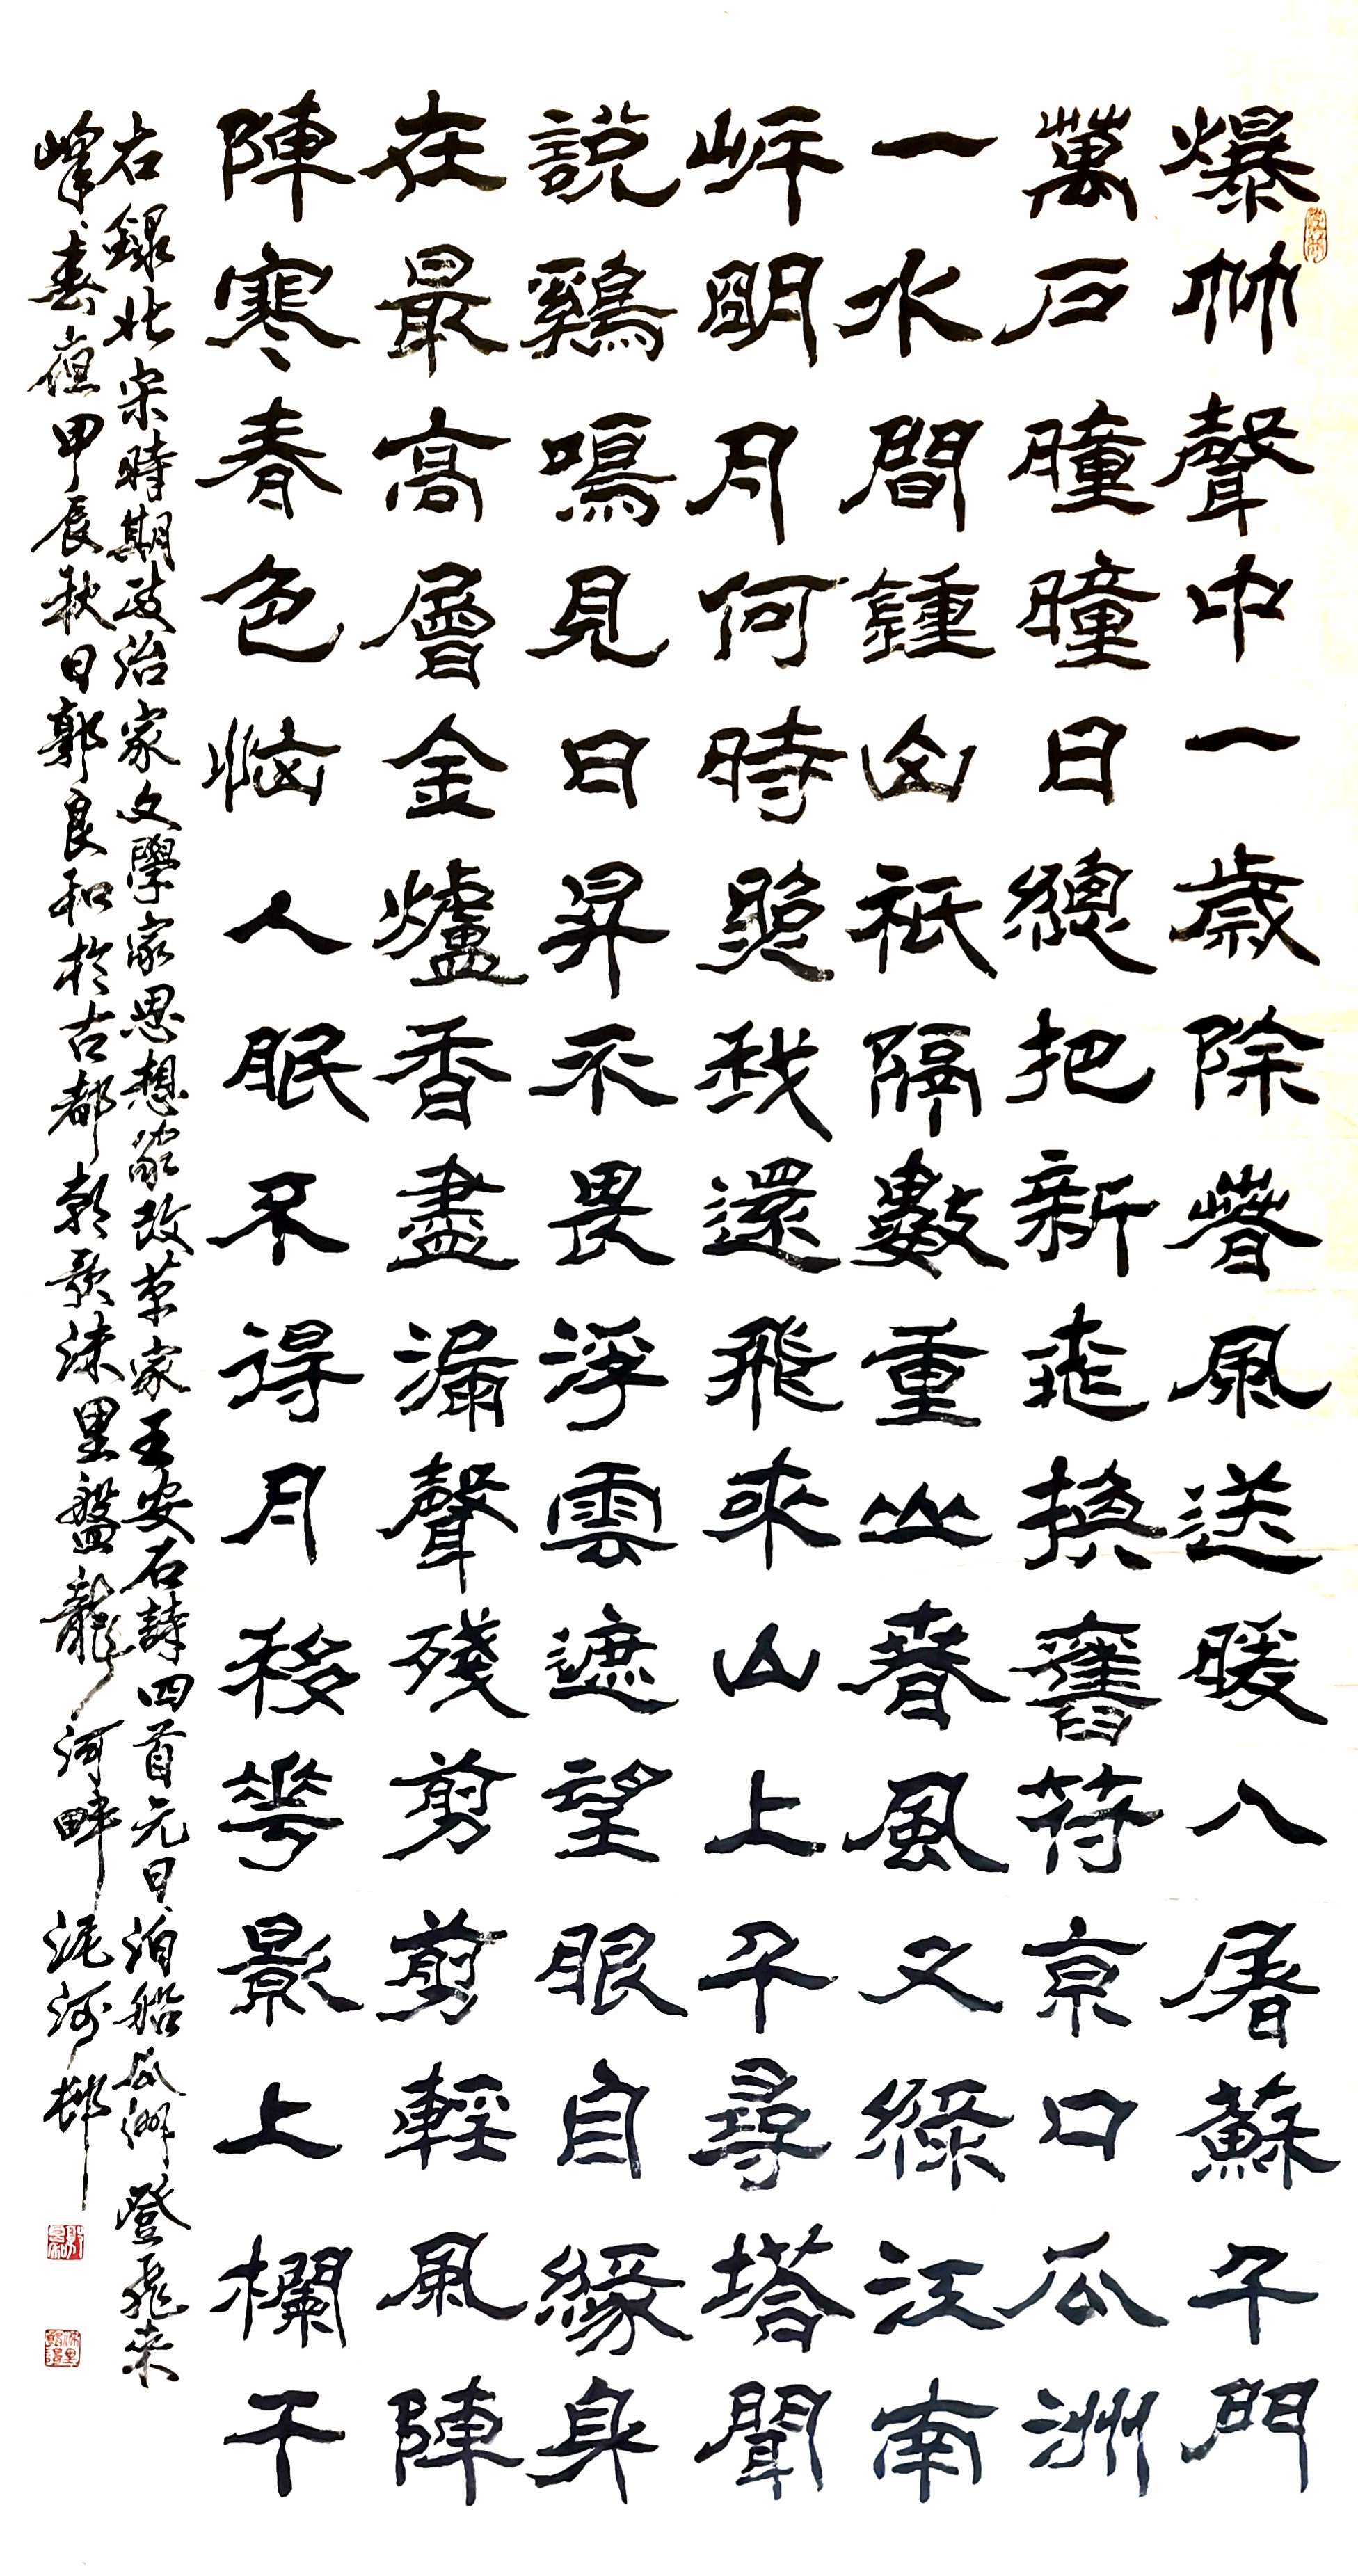 爆竹聲中一歲除春風送暖入屠蘇千門
萬户曈曈日總把新桃換舊符京口瓜洲
一水間鍾山祇隔數重山春風又綠江南
岸明月何時照我還飛來山上千尋塔聞
說鷄鳴見日昇不畏浮雲遮望眼自緣身
在最高層金爐香盡漏聲殘剪剪輕風陣
陣寒春色惱人眠不得月移花影上欄干
右錄北宋時期政治家文學家思想家改革家王安石詩四首元日泊船瓜洲登飛来
峰春夜甲辰秋日郭良和於古都朝歌沬里盤龍河畔泥河邨